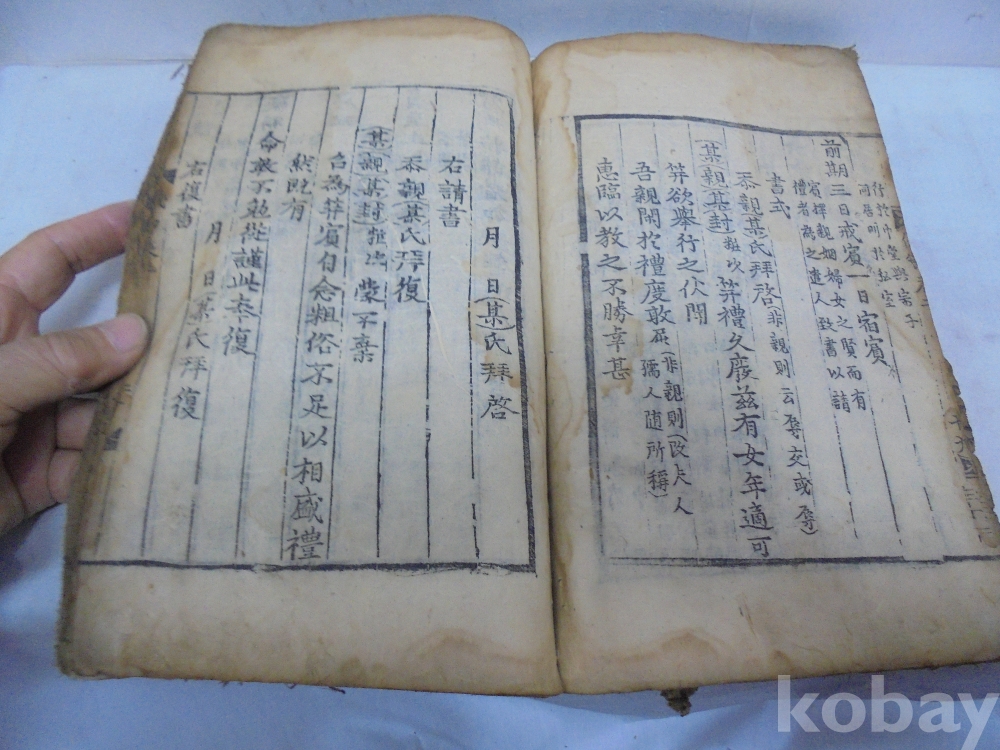 前期三日戒賓一日宿賓
賓擇親姻婦女之賢而有
禮者為之遣人致書以請
書式
忝親某氏拜啓(非親則云辱交或辱)
(某)(親)(某封)粧次笄禮久廢兹有女年適可
笄欲舉行之伏聞
吾親閑於禮度敢屈(非親則(改夫人
孺人隨所稱)
惠臨以教之不勝幸甚
月 日(某)氏拜啓
右請書
忝(親)(某)氏拜復
(某)(親)(某封)粧次蒙不棄
召為笄賓自念粗俗不足以相盛禮
然既有
命敢不勉從謹此奉復
月 日某氏拜復
右復書
kobay